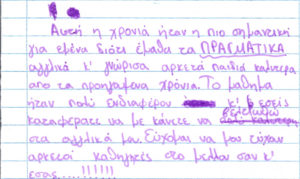 Αυτή η χρονιά ήταν η πιο σημαντική
για εμένα διότι έμαθα τα ΠΡΑΓΜΑΤΙΚΑ
αγγλικά κ' γνώρισα αρκετά παιδιά καλύτερα
από τα προηγούμενα χρόνια. Το μάθημα
ήταν πολύ ενδιαφέρον κ' εσείς
καταφέρατε να με κάνετε να βελτιωθώ
στα αγγλικά μου. Εύχομαι να μου τύχουν
αρκετοί καθηγητές στο μέλλον σαν κ'
εσάς.....!!!!!!